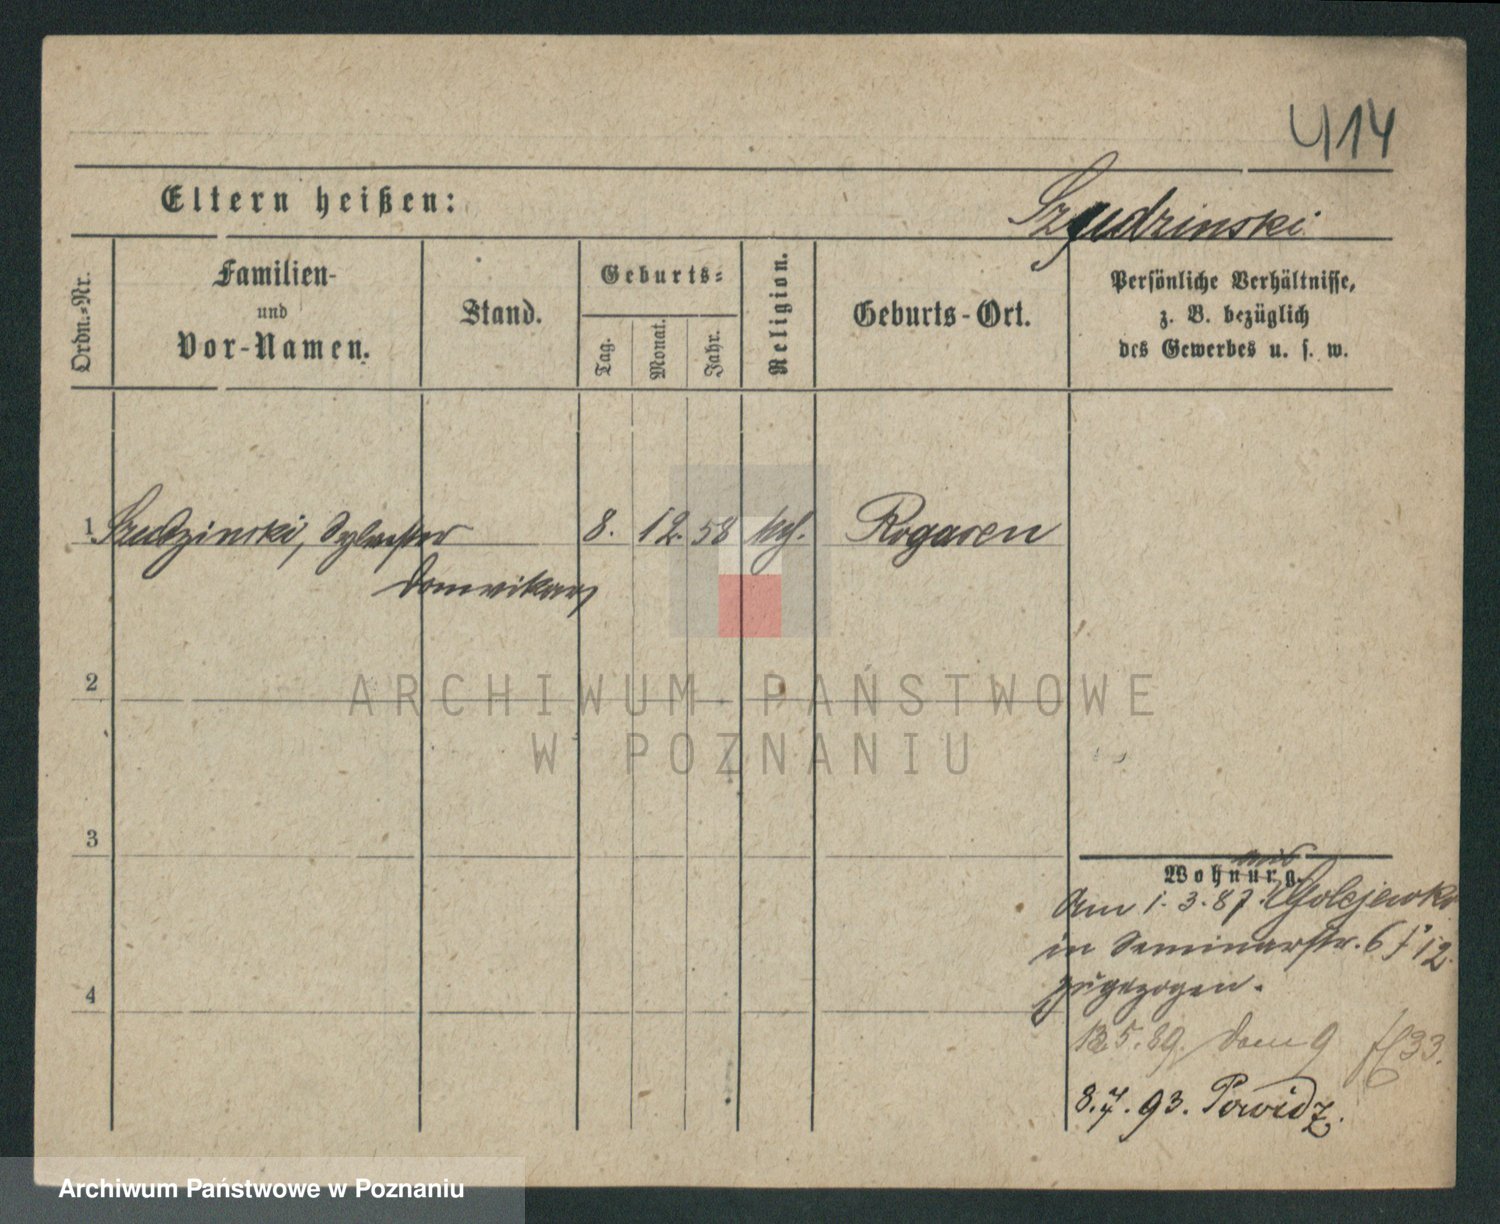 414
Eltern heißen:
Szudzinski
Ordn.-Nr.
Familien-
und
Vor-Namen.
Stand.
Geburts-
Tag.
Monat.
Jahr.
Religion.
Geburts-Ort.
Persönliche Verhältnisse,
z. B. bezüglich
des Gewerbes u. s. w.
1 Szudzinski, Sylvester 8. 12. 58 kth. Rogasen
Domvikar
2
3
4
Wohnung.
aus
Am 1.3.87. Golejewko
in Seminarstr. 6 12.
zugezogen.
5.89. Dom 9 33.
8.7.93. Powidz.
ARCHIWUM PAŃSTWOWE
W POZNANIU
Archiwum Państwowe w Poznaniu